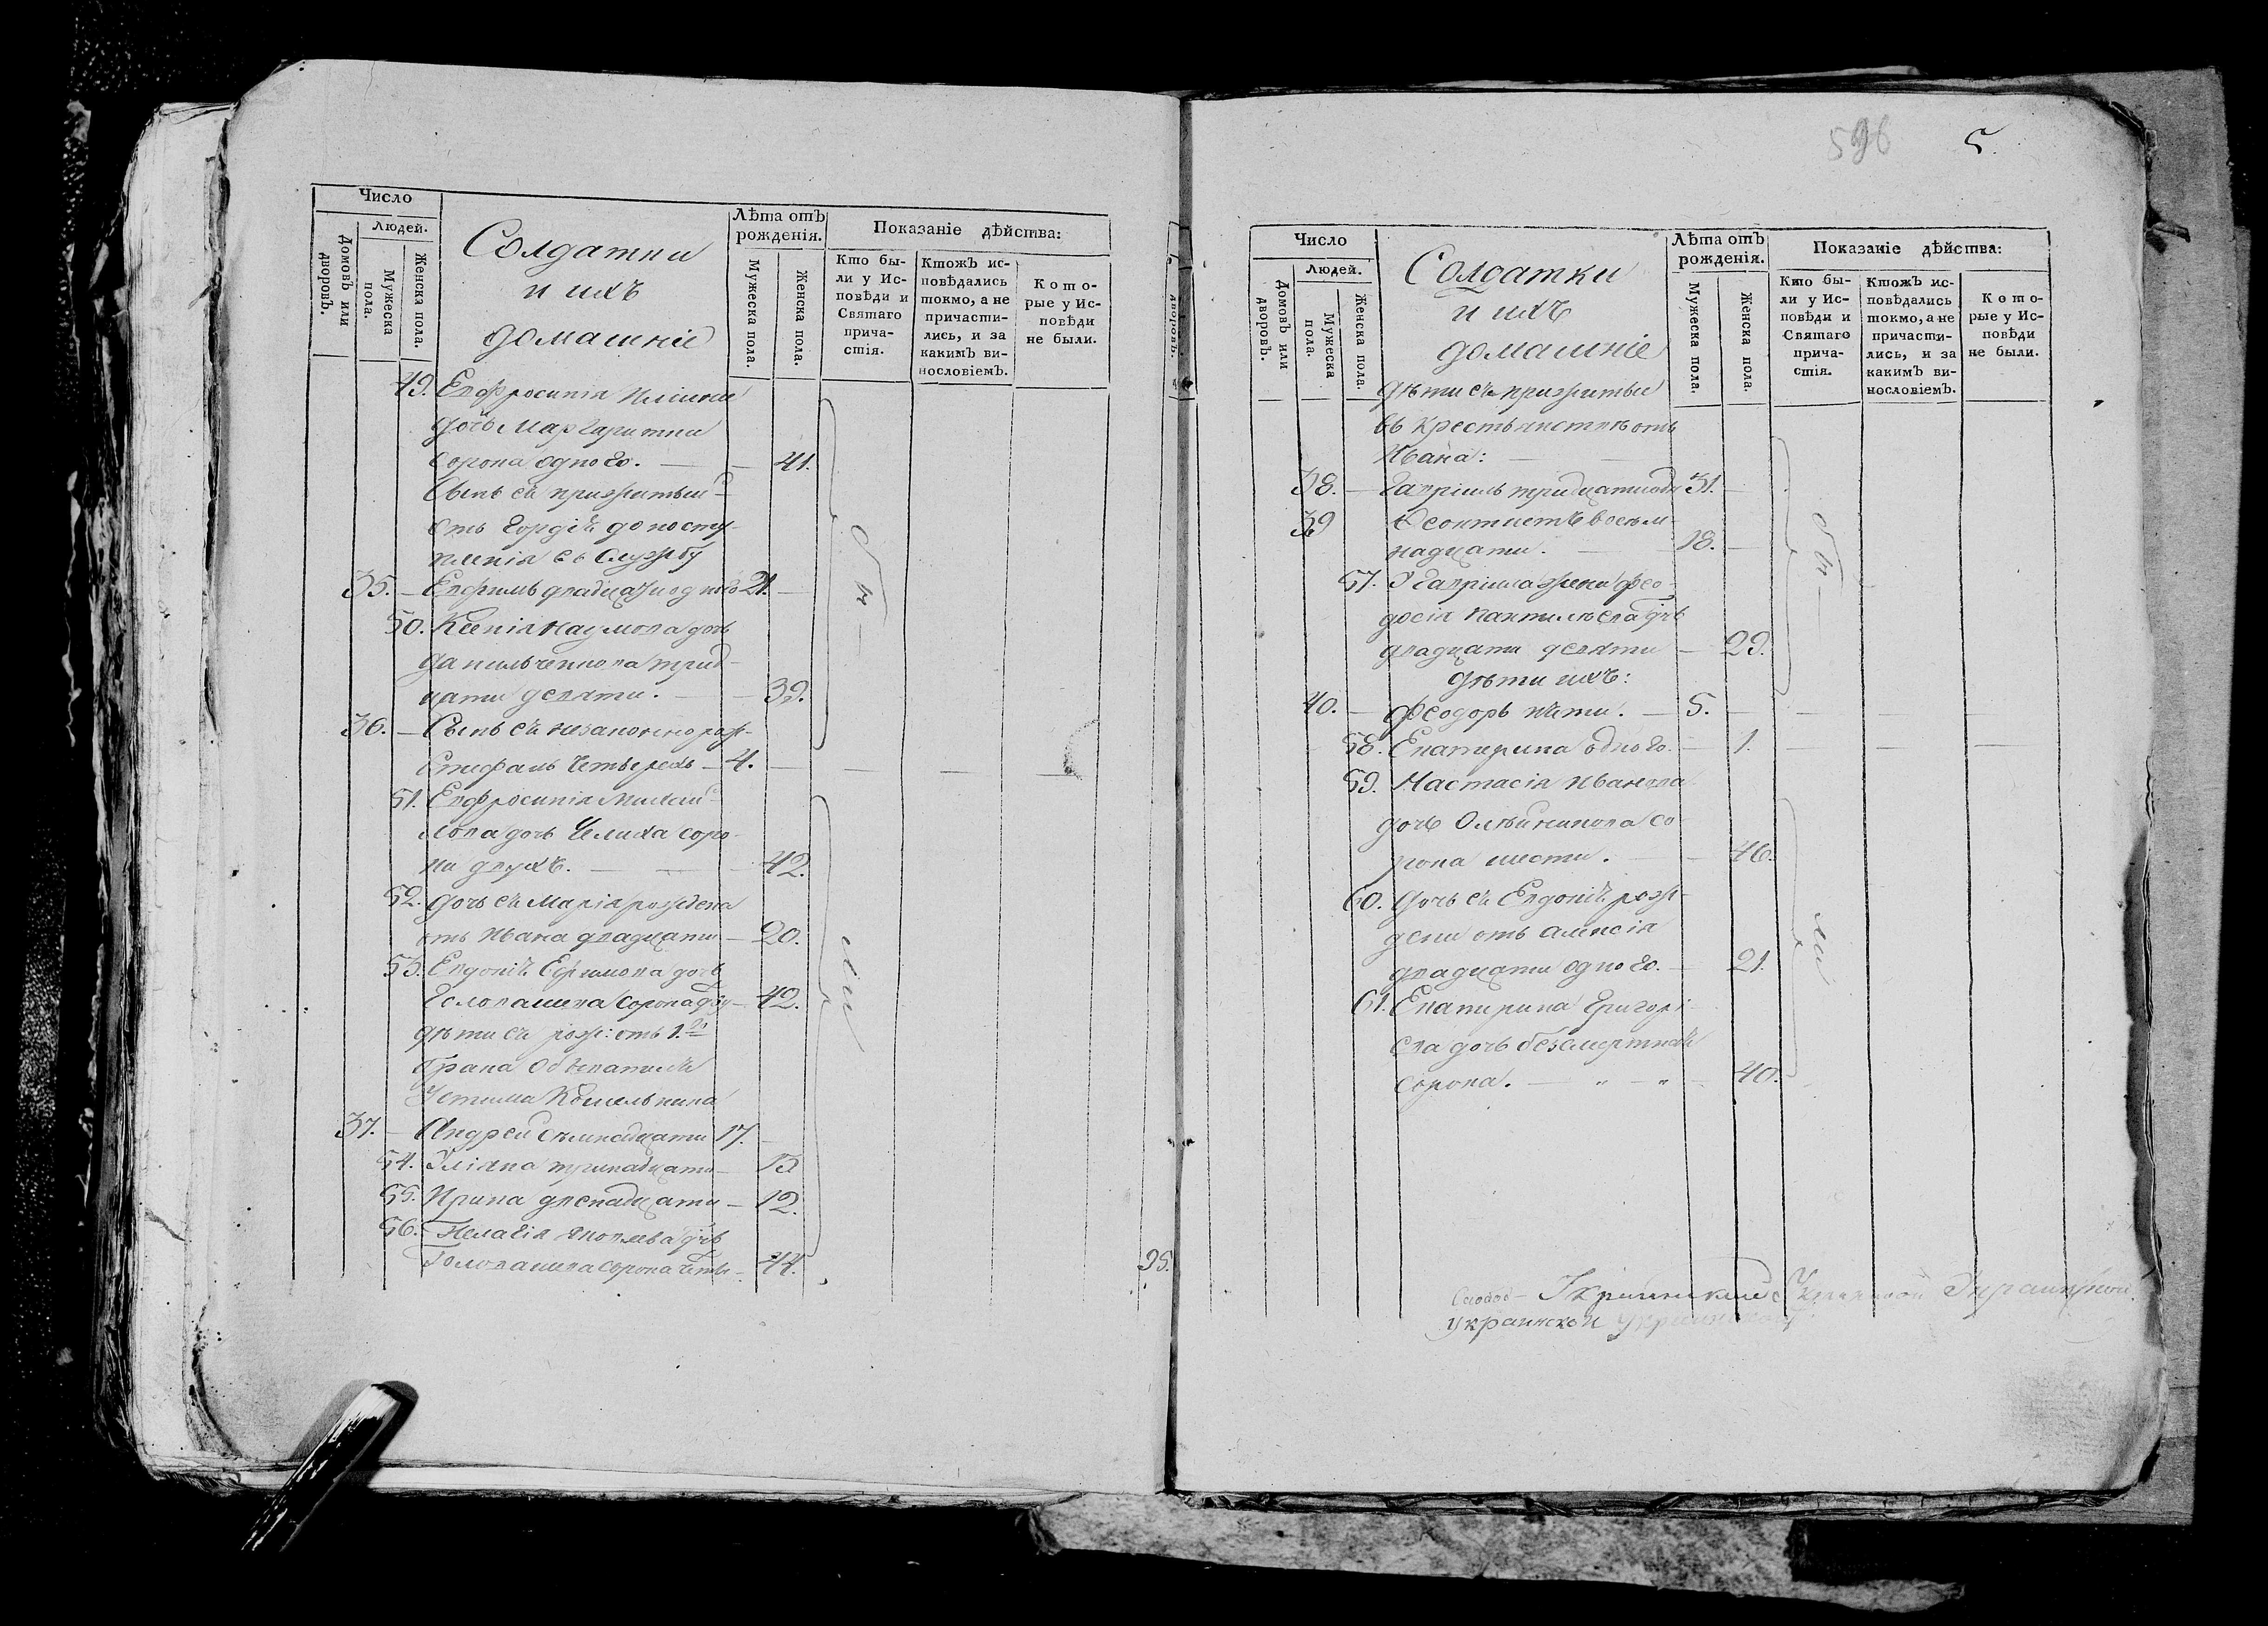 Число
Людей.
Домовъ или дворовъ.
Мужеска пола.
Женска пола.
Солдатки
и ихъ
домашніе
Лѣта отъ рожденія.
Мужеска пола.
Женска пола.
Показаніе дѣйства:
Кто бы-
ли у Ис-
повѣди и
Святаго
прича-
стія.
Ктожъ ис-
повѣдались
токмо, а не
причасти-
лись, и за
какимъ ви-
нословіемъ.
Кото-
рые у Ис-
повѣди
не были.
49. Евфросинія
дочь Маргаритки
сорока одного. — — 41.
Сынъ ея прижитый
отъ Гордѣя до посту-
пленія въ Службу
35. — Евфимъ двадцати одного 21. —
50. Ксенія Наумова дочь
Данильченкова трид-
цати девяти. — — 39.
36. — Сынъ ея незаконнорож-
Стефанъ четырехъ — 4. —
51. Евфросинія Михай-
лова дочь соро-
ка двухъ. — — 42.
52. дочь ея Марія рождена
отъ Ивана двадцати — 20.
53. Евдокія Ефимова дочь
Головашева сорока дву — 42.
дѣти ея рожд: отъ 1.го
брака
Устима
37. — Андрей семнадцати 17. —
54. Уліяна тринадцати — 13
55. Ирина двенадцати — 12.
56. Пелагія Яковлева дчь
Головашева сорока четы — 44.
95.
596
5.
Число
Людей.
Домовъ или дворовъ.
Мужеска пола.
Женска пола.
Солдатки
и ихъ
домашніе
Лѣта отъ рожденія.
Мужеска пола.
Женска пола.
Показаніе дѣйства:
Кто бы-
ли у Ис-
повѣди и
Святаго
прича-
стія.
Ктожъ ис-
повѣдались
токмо, а не
причасти-
лись, и за
какимъ ви-
нословіемъ.
Кото-
рые у Ис-
повѣди
не были.
дѣти ея прижитыи
въ крестьянствѣ отъ
Ивана:
38. — Гавріилъ тридцати одн 31. —
39 Ѳеоктистъ восем-
надцати. — 18. —
57. У Гавріила жена Фео-
досія Пантилѣева дчь
двадцати девяти — 29.
дѣти ихъ:
40. — Феодоръ пяти. — 5. —
58. Екатерина одного. — 1.
59. Настасія Иванова
дочь Олѣйникова со
рока шести. — 46.
60. Дочь ея Евдокія рож-
дена отъ Алексія
двадцати одного. — 21.
61. Екатерина Григорі-
ева дочь безсмертная
сорока. — „ — „ — 40.
Слобод-
украинской